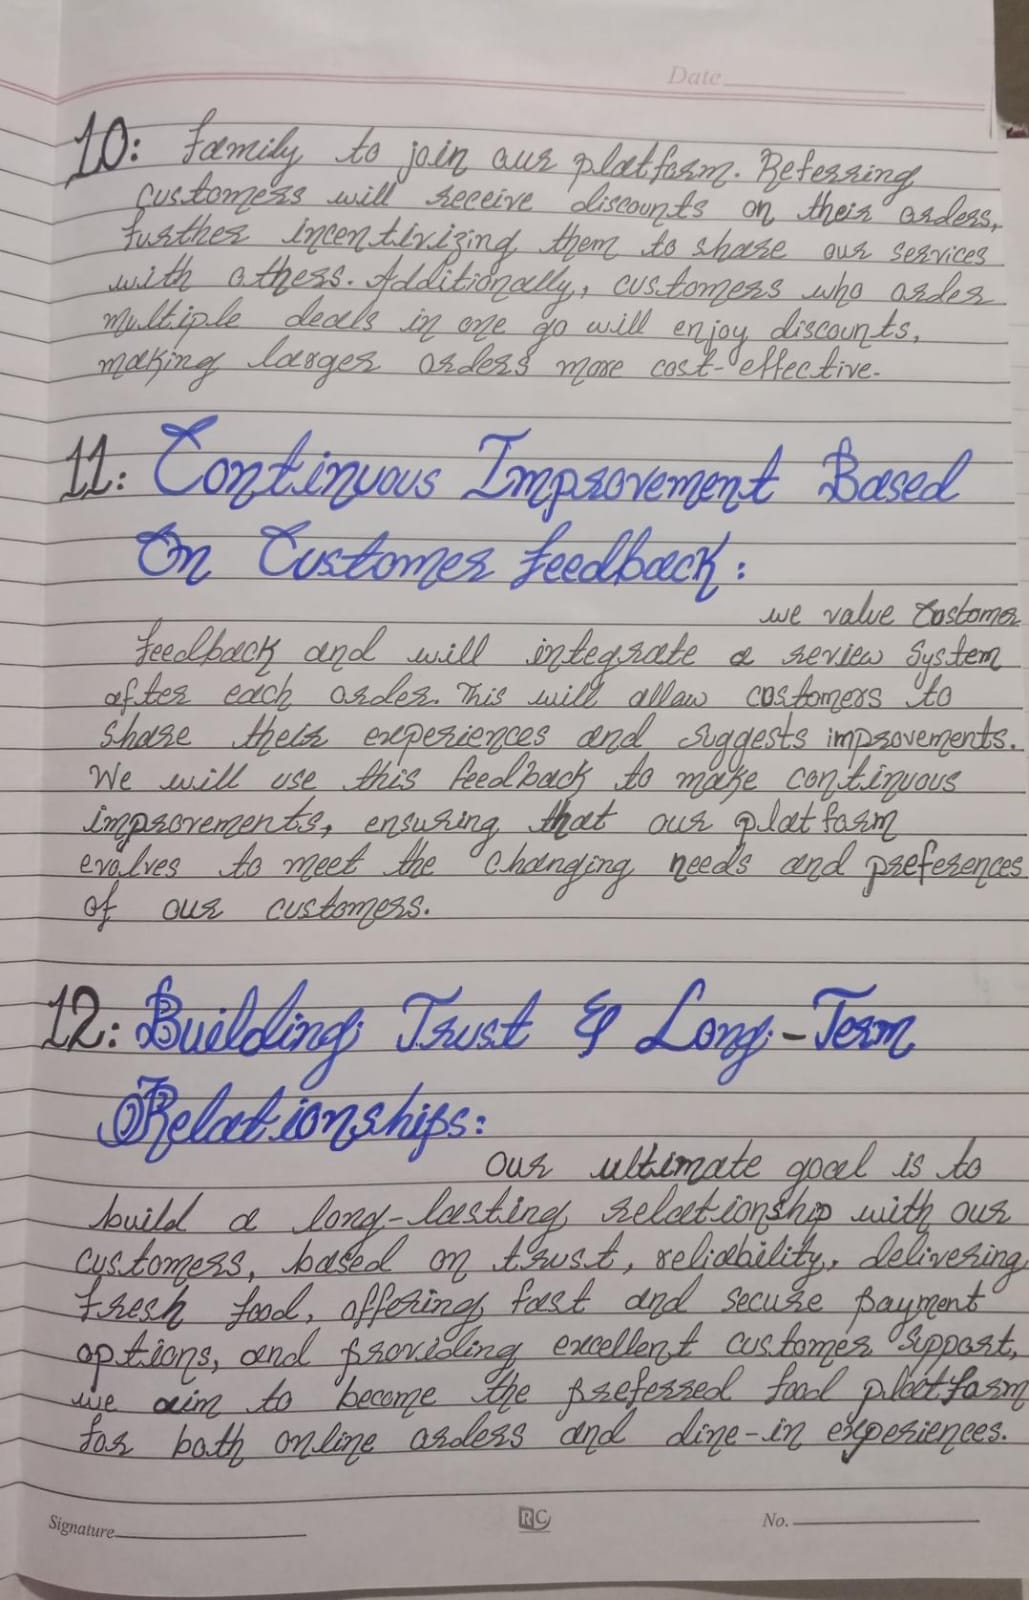 Date
10: Family to join our platform. Referring
customers will receive discounts on their orders,
further incentivizing them to share our services
with others. Additionally, customers who order
multiple deals in one go will enjoy discounts,
making larger orders more cost-effective.
11: Continuous Improvement Based
On Customer feedback:
we value customer
feedback and will integrate a review system
after each order. This will allow customers to
share their experiences and suggests improvements.
We will use this feedback to make continuous
improvements, ensuring that our platform
evolves to meet the changing needs and preferences
of our customers.
12: Building Trust & Long-Term
Relationships:
our ultimate goal is to
build a long-lasting relationship with our
customers, based on trust, reliability, delivering
fresh food, offering fast and secure payment
options, and providing excellent customer support,
we aim to become the preferred food platform
for both online orders and dine-in experiences.
Signature
RC
No.